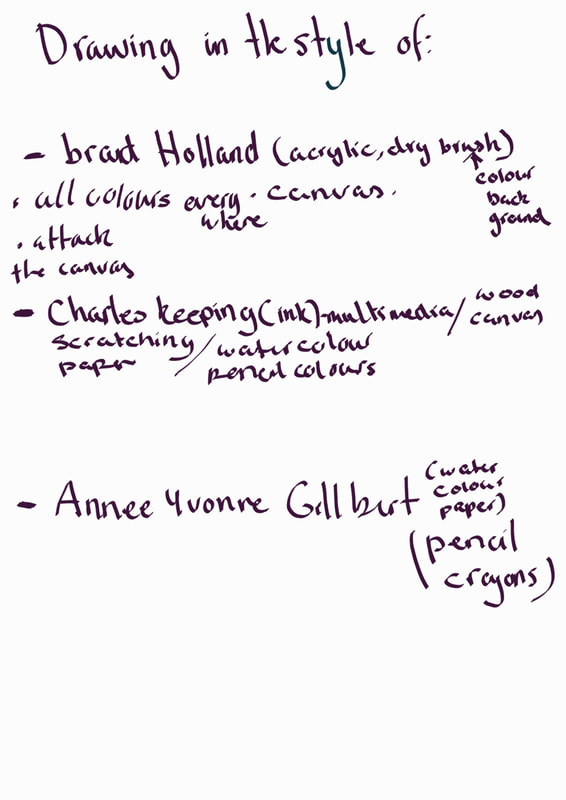 Drawing in the style of:
- bradt Holland (acrylic, dry brush)
colour
back
ground
• all colours every • canvas.
where
• attack
the canvas
- Charles keeping (ink)-multimedia/ wood
canvas
scratching / watercolour
paper pencil colours
- Annee Yvonne Gillbert (water
colour
paper)
(pencil
crayons)